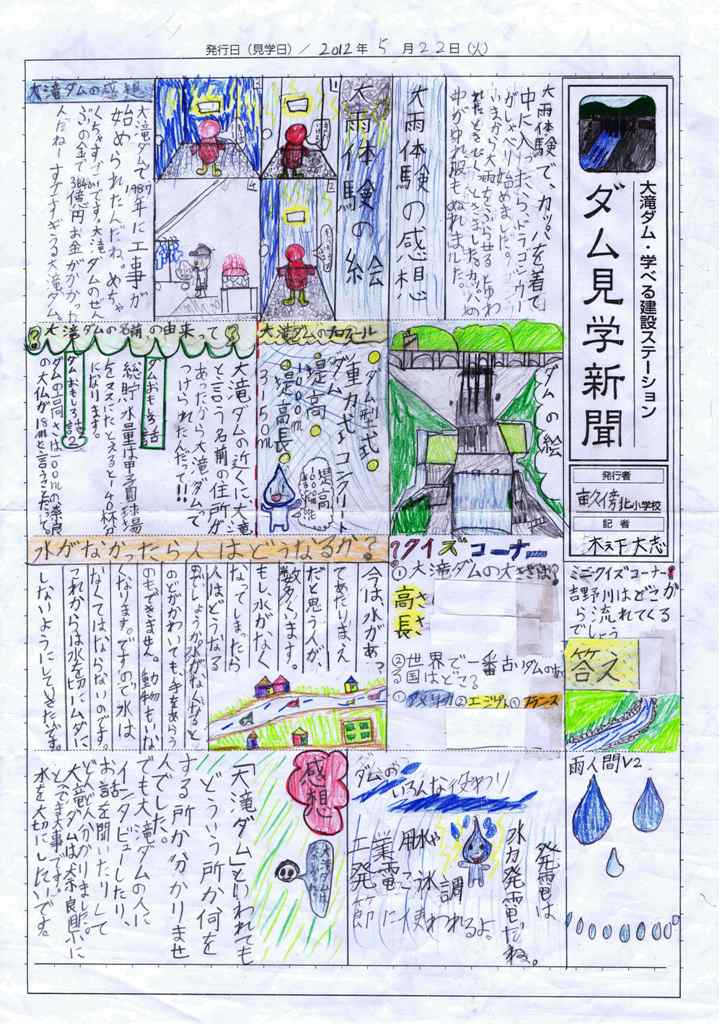 発行日(見学日)/2012年5月22日(火)
大滝ダム・学べる建設ステーション
ダム見学新聞
発行者
畝傍北小学校
記者
木下大志
大雨体験で、カッパを着て
中に入ったら、ドラゴンウー
がしゃべり始めました。
大雨体験の感想
大雨体験の絵
大滝ダムの感想
大滝ダムで1987年に工事が
始められたんだね。めちゃ
くちゃすごいです。大滝ダムのぜん
ぶの金で3840億円お金がかかった
んだねーすごすぎる大滝ダム。
ダムの絵
大滝ダムのプロフィール
ダム型式
重力式コンクリート
ダム
堤高
100m
堤高長
315.0m
大滝ダムの名前の由来って?
大滝ダムの近くに大滝
と言う名前の住所が
あったから大滝ダムで
つけられたんだって!!
ダムおもしろ話
総貯水量は甲子園球場
をマスにたとえると140杯分
になります。
ダムおもしろ話②
ダムの高さは100mの奈良
の大仏が18mと言うことだって。
ミニクイズコーナー
吉野川はどこか
ら流れてくる
でしょう
答え
?クイズコーナー
①大滝ダムの大きさは?
高さ
長さ
②世界で一番古いダムのあ
る国はどこ?
①アメリカ②エジプト①フランス
水がなかったら人はどうなるか?
今は水があっ
てあたりまえ
だと思う人が、
数多くいます。
もし水がなく
なってしまったら
人はどうなる
のでしょうか水がなくなると
のどがかわいても手をあらう
のもできません。動物もいな
くなります。ですので水は
なくてはならないのです。
これからは水を大切にムダに
しないようにしていきたいです。
雨人間V2
ダムのいろんな役わり
発電は
水力発電だね。
調節に使われるよ。
感想
「大滝ダム」といわれても
どういう所か何を
する所か分かりませ
んでした。
でも大滝ダムの人に
インタビューしたり、
お話を聞いたりして
どんどん分かりました。
大滝ダムは奈良県に
とって大事です。
水を大切にしたいです。